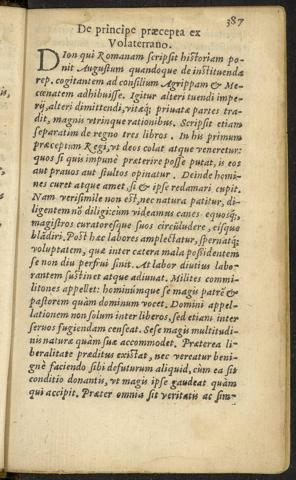 387
De principe præcepta ex
Volaterrano.
Dion qui Romanam scripsit historiam po-
nit Augustum quandoque de instituenda
rep. cogitantem ad consilium Agrippam & Me-
cœnatem adhibuisse. Igitur alteri tuendi impe-
rij, alteri dimittendi, vitæq; priuatæ partes tra-
dit, magnis vtrinque rationibus. Scripsit etiam
separatim de regno tres libros. In his primum
præceptum Regi, vt deos colat atque veneretur:
quos si quis impune præterire posse putat, is eos
aut prauos aut stultos opinatur. Deinde homi-
nes curet atque amet, si & ipse redamari cupit.
Nam verisimile non est, nec natura patitur, di-
ligentem nō diligi: cùm videamus canes equosq;,
magistros curatoresque suos circūludere, eisque
blādiri. Post hæc labores amplectatur, spernatq;
voluptatem, quæ inter cætera mala possidentem
se non diu perfrui sinit. At labor diutius labo-
rantem sustinet atque adiuuat. Milites commi-
litones appellet: hominūmque se magis patrē &
pastorem quàm dominum vocet. Domini appel-
lationem non solum inter liberos, sed etiam inter
seruos fugiendam censeat. Se se magis multitudi-
nis naturæ quàm suæ accommodet. Præterea li-
beralitate præditus existat, nec vereatur beni-
gnè faciendo sibi defuturum aliquid, cùm ea sit
conditio donantis, vt magis ipse gaudeat quàm
qui accipit. Præter omnia sit veritatis ac sim-